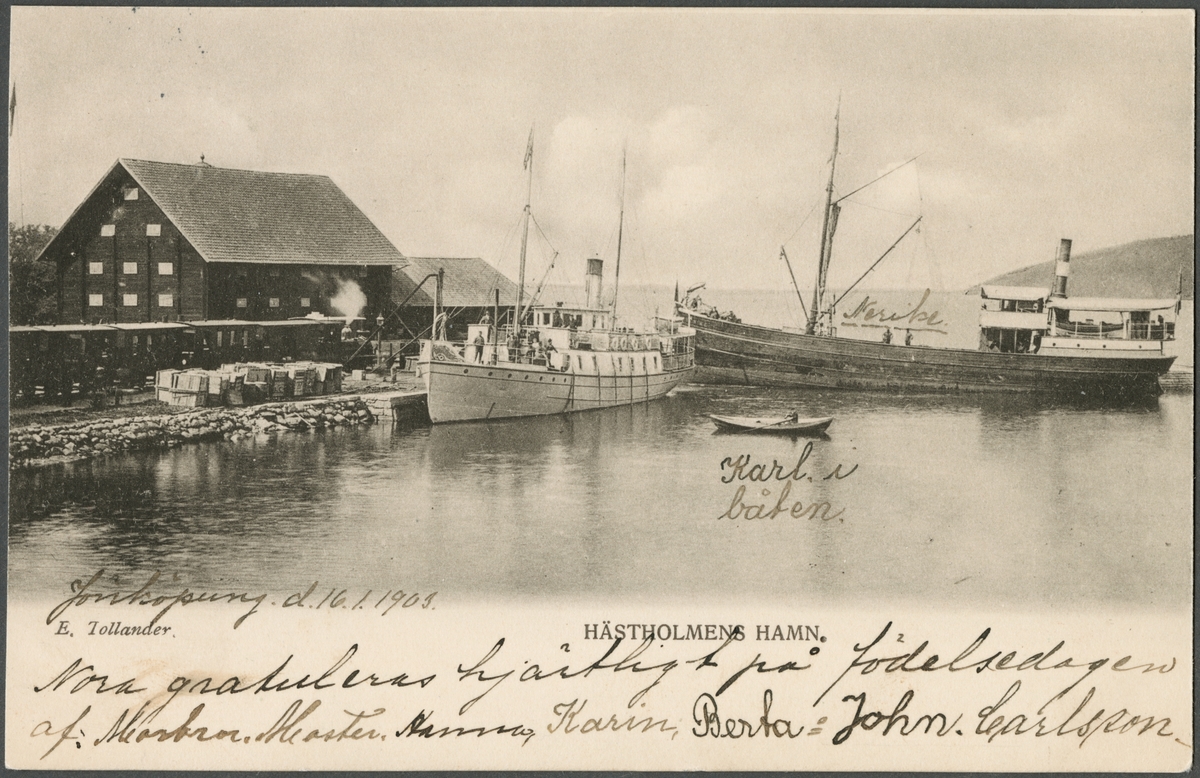 Nerike.
Karl. i
båten.
Jönköping. d. 16. 1. 1903.
E. Tollander.
HÄSTHOLMENS HAMN.
Nora gratuleras hjärtligt på födelsedagen
af: Morbror. Moster. Hanna, Karin, Berta = John. Carlsson.